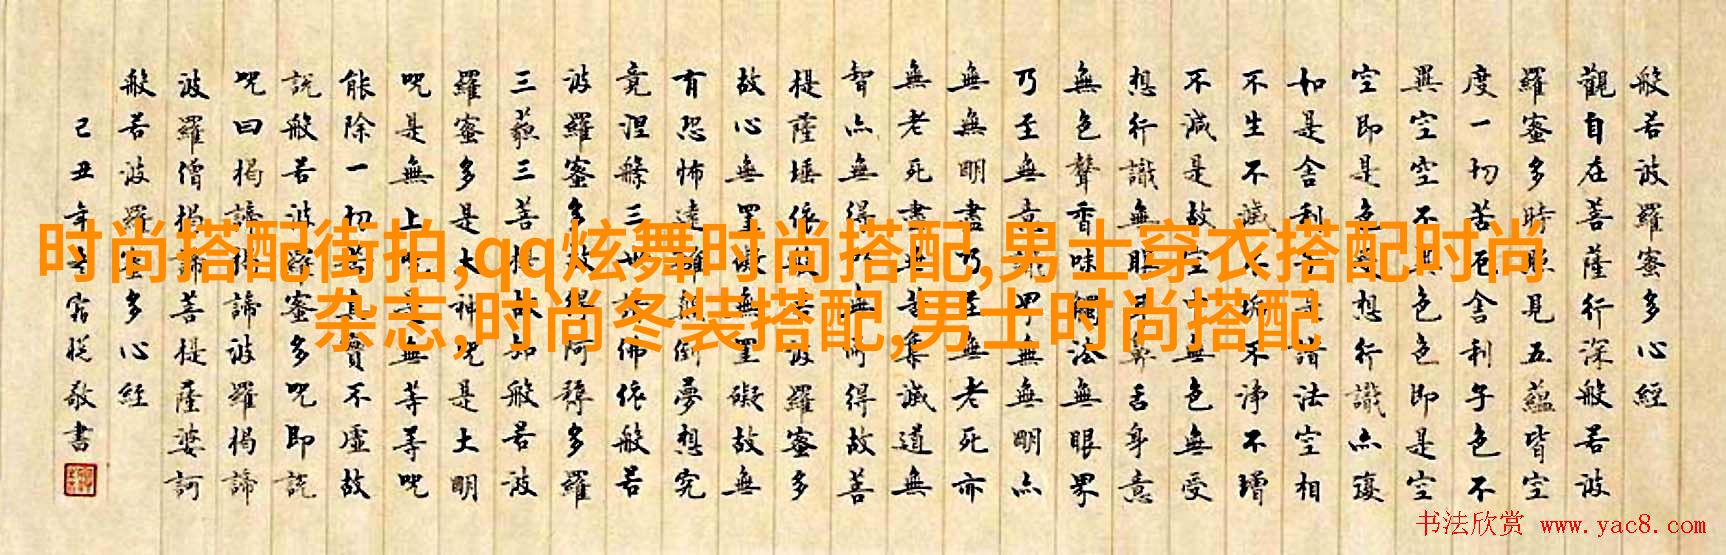 时尚搭配街拍,qq炫舞时尚搭配,男士穿衣搭配时尚
杂志,时尚冬装搭配,男士时尚搭配
般若波羅蜜多心經
觀自在菩薩行深般若波
羅蜜多時照見五蘊皆空
度一切苦厄舍利子色不
異空空不異色色即是空
空即是色受想行識亦復
如是舍利子是諸法空相
不生不滅不垢不淨不增
不減是故空中無色無受
想行識無眼耳鼻舌身意
無色聲香味觸法無眼界
乃至無意識界無無明亦
無無明盡乃至無老死亦
無老死盡無苦集滅道無
智亦無得以無所得故菩
提薩埵依般若波羅蜜多
故心無罣礙無罣礙故無
有恐怖遠離顛倒夢想究
竟涅槃三世諸佛依般若
波羅蜜多故得阿耨多羅
三藐三菩提故知般若波
羅蜜多是大神咒是大明
咒是無上咒是無等等咒
能除一切苦真實不虛故
說般若波羅蜜多咒即說
咒曰揭諦揭諦波羅揭諦
波羅僧揭諦菩提薩婆訶
般若波羅蜜多心經
己丑年敬書
书法欣赏 www.yac8.com